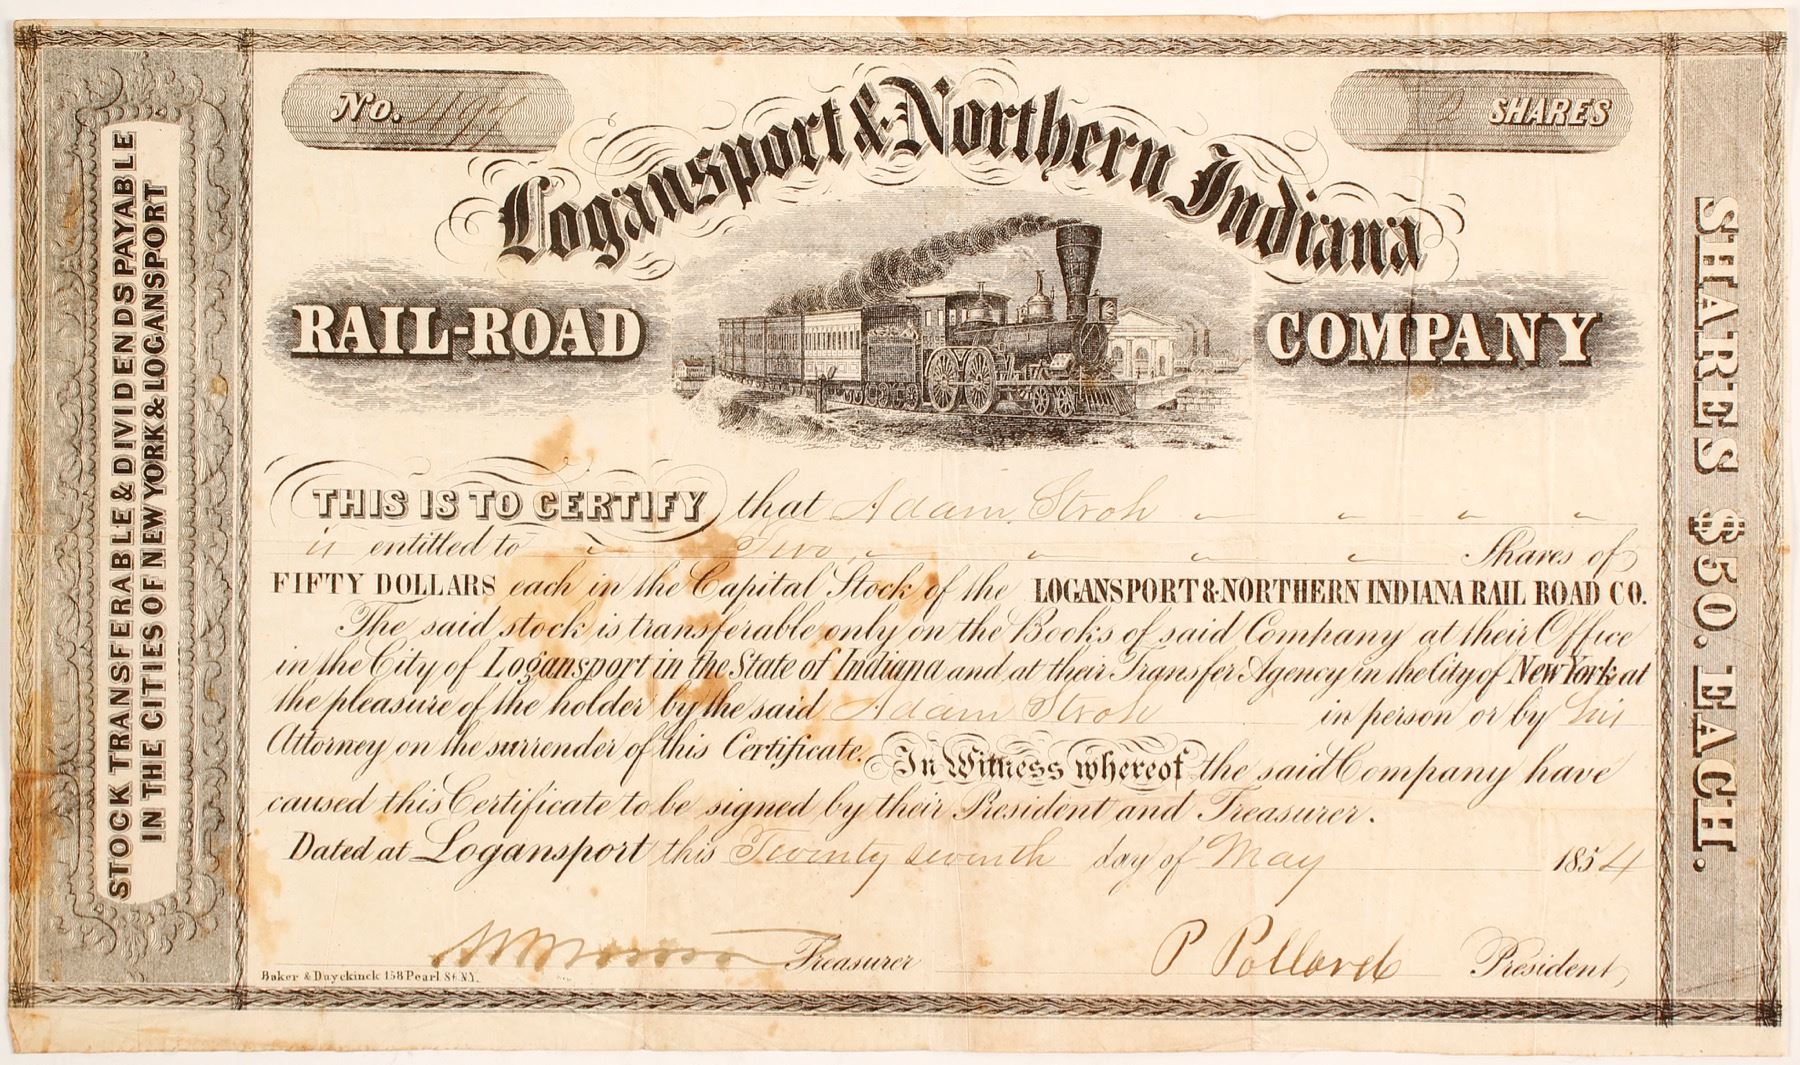 No. 497
2 SHARES
Logansport & Northern Indiana
RAIL-ROAD COMPANY
STOCK TRANSFERABLE & DIVIDENDS PAYABLE
IN THE CITIES OF NEW YORK & LOGANSPORT
THIS IS TO CERTIFY that Adam Stroh
is entitled to Two Shares of
FIFTY DOLLARS each in the Capital Stock of the LOGANSPORT & NORTHERN INDIANA RAIL ROAD CO.
The said stock is transferable only on the Books of said Company at their Office
in the City of Logansport in the State of Indiana and at their Transfer Agency in the City of New York at
the pleasure of the holder by the said Adam Stroh in person or by his
Attorney on the surrender of this Certificate. In Witness whereof the said Company have
caused this Certificate to be signed by their President and Treasurer.
Dated at Logansport this Twenty seventh day of May 1854
Treasurer P Pollard President
Baker & Duyckinck 158 Pearl St. N.Y.
SHARES $50. EACH.